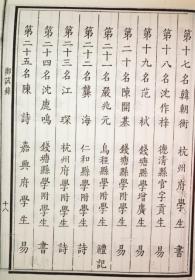 第十七名韓朝衡 杭州府學生 書
第十八名沈作梓 德清縣官子貢生 易
第十九名范栻 錢塘縣學增廣生 易
第二十名陳開基 錢塘縣學附學生 易
第二十一名嚴兆元 烏程縣學附學生 禮記
第二十二名龔海 仁和縣學附學生 詩
第二十三名江琛 杭州府學附學生 詩
第二十四名沈鹿鳴 錢塘縣學附學生 書
第二十五名陳詩 嘉興府學生 易
鄉試錄
十八